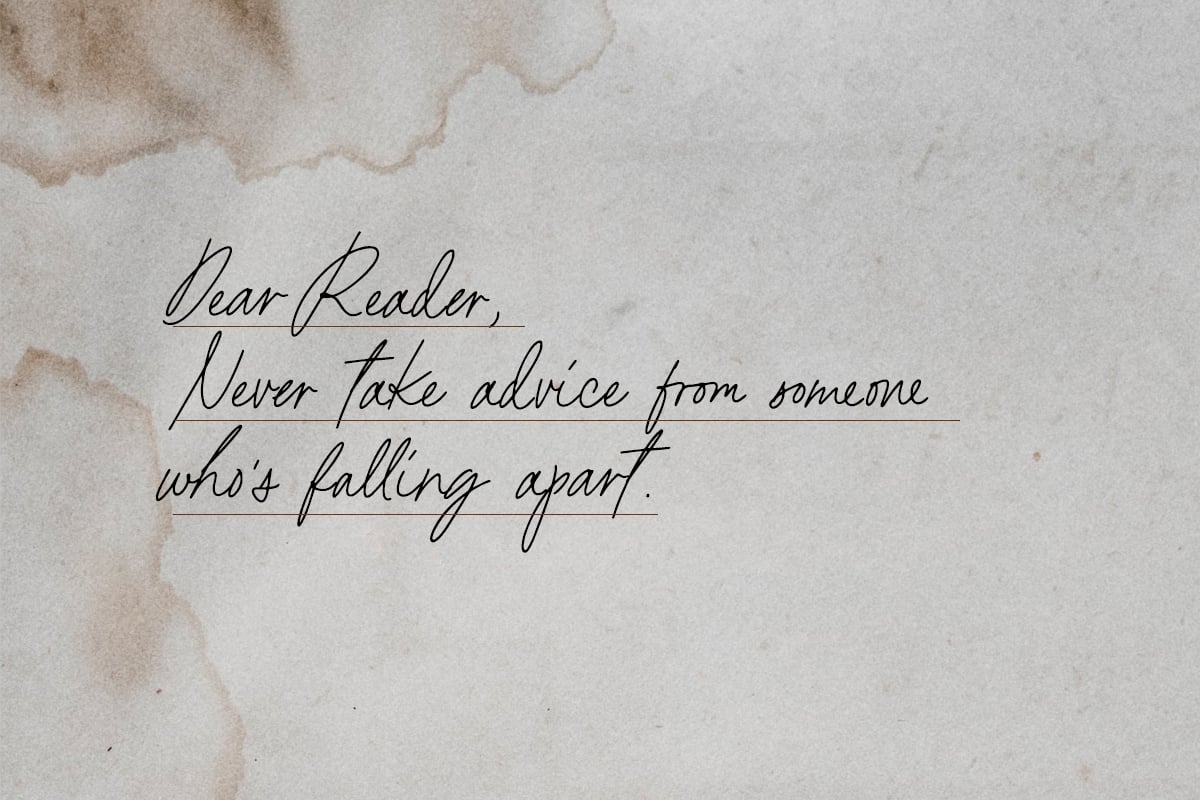 Dear Reader,
Never take advice from someone
who's falling apart.